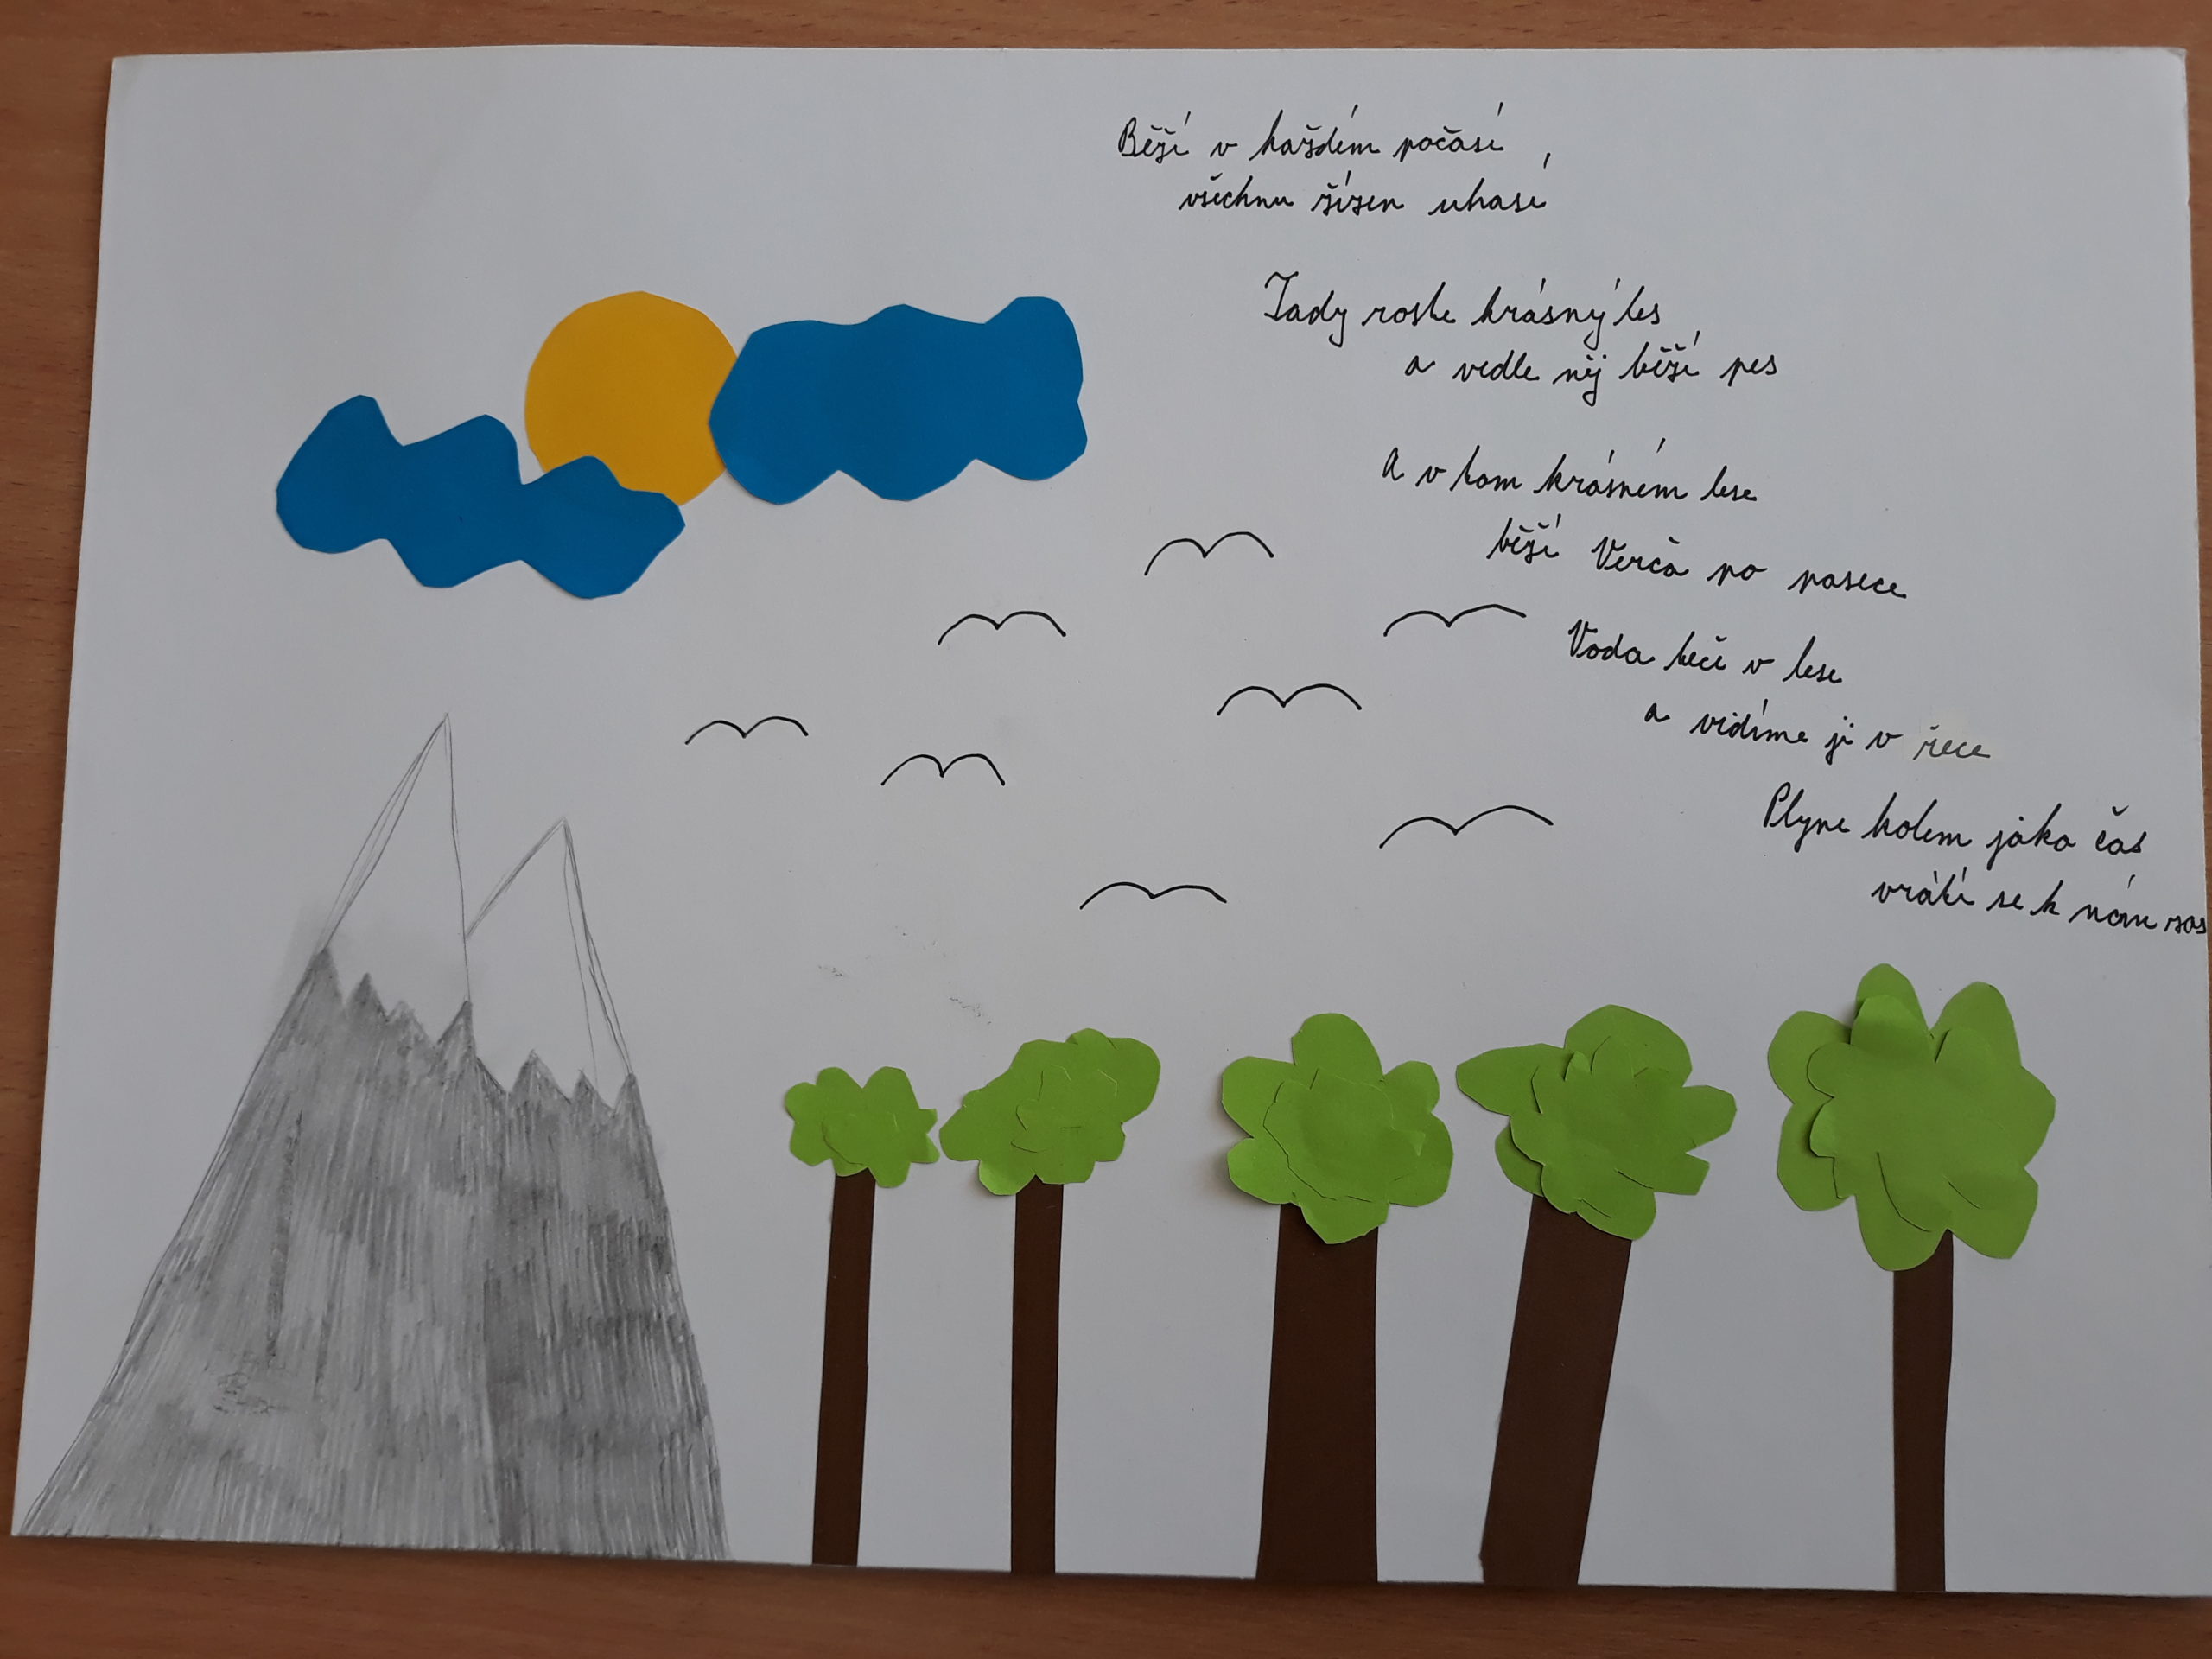 Běží v každém počasí,
všechnu žízen uhasí
Tady roste krásný les
a vedle něj běží pes
A v tom krásném lese
běží Verča po pasece
Voda teče v lese
a vidíme ji v řece
Plyne kolem jako čas
vrátí se k nám zas